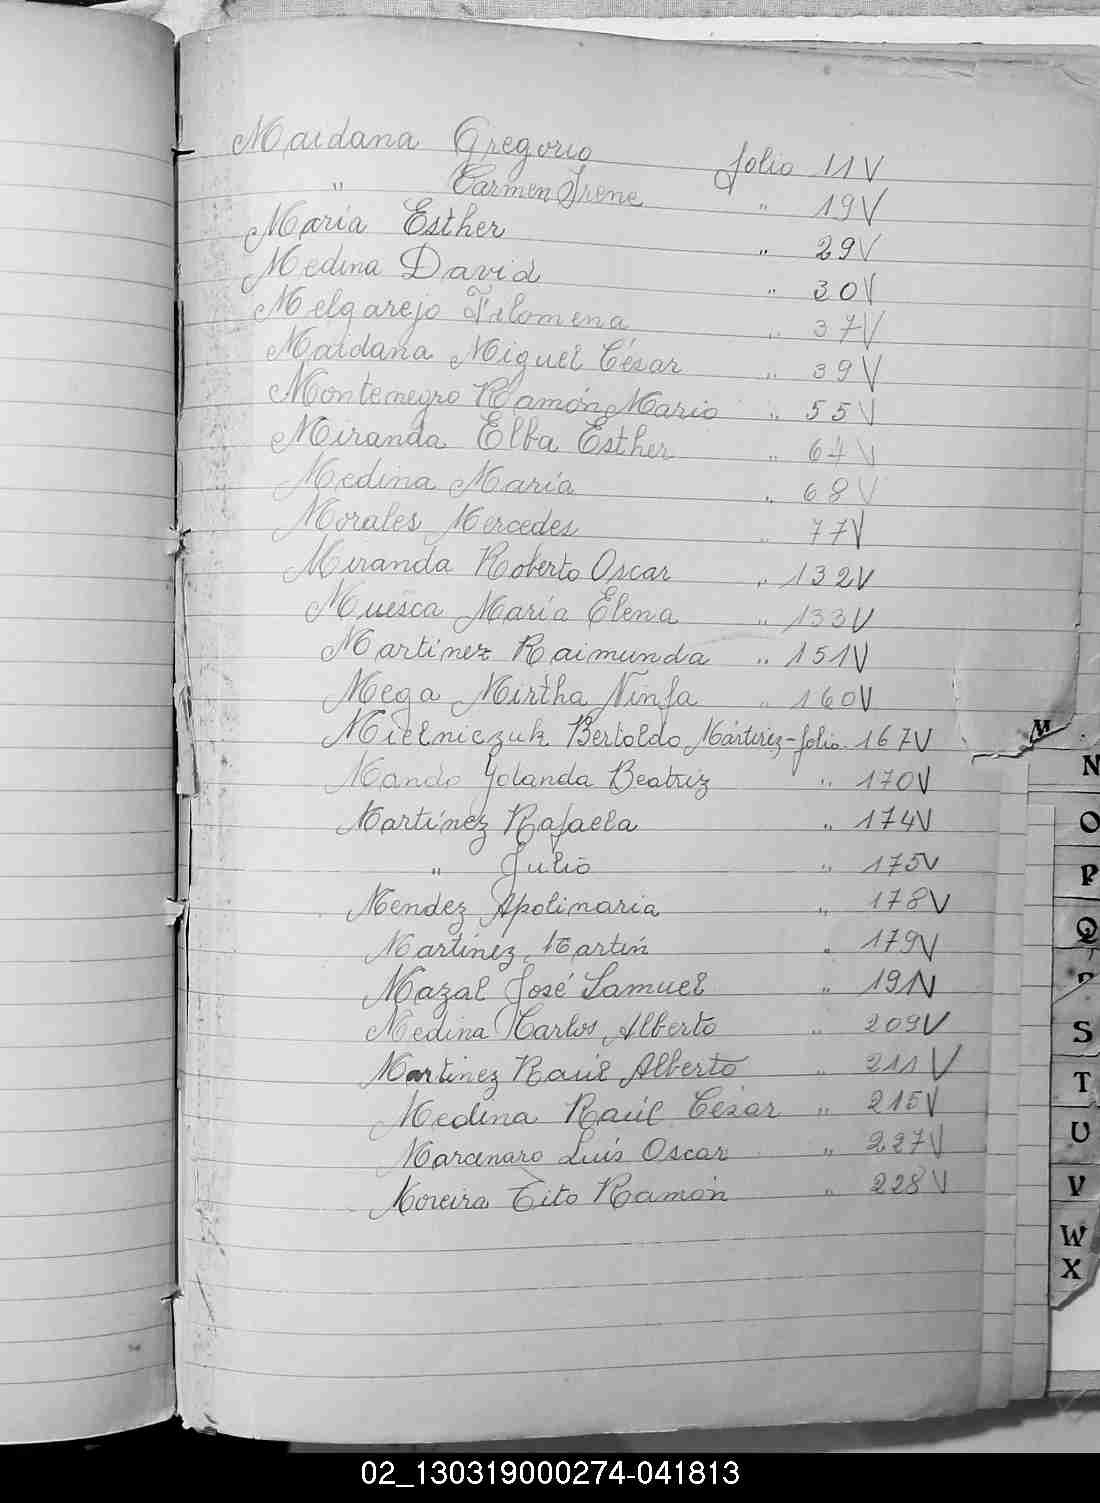 Maidana Gregorio folio 11V
" Carmen Irene " 19V
María Esther " 29V
Medina David " 30V
Melgarejo Filomena " 37V
Maidana Miguel César " 39V
Montenegro Ramón Mario " 55V
Miranda Elba Esther " 64V
Medina María " 68V
Morales Mercedes " 77V
Miranda Roberto Oscar " 132V
María Elena " 133V
Martínez Raimunda " 151V
Meza Mirtha Ninfa " 160V
Mielniczuk Bertoldo Mártirez - folio 167V
Mando Yolanda Beatriz " 170V
Martínez Rafaela " 174V
" Julio " 175V
Mendez Apolinaria " 178V
Martínez Martín " 179V
Mazal José Samuel " 191V
Medina Carlos Alberto " 209V
Martinez Raúl Alberto " 211V
Medina Raúl César " 215V
Marcenaro Luis Oscar " 227V
Moreira Tito Ramón " 228V
M
N
O
P
Q
S
T
U
V
W
X
02_130319000274-041813